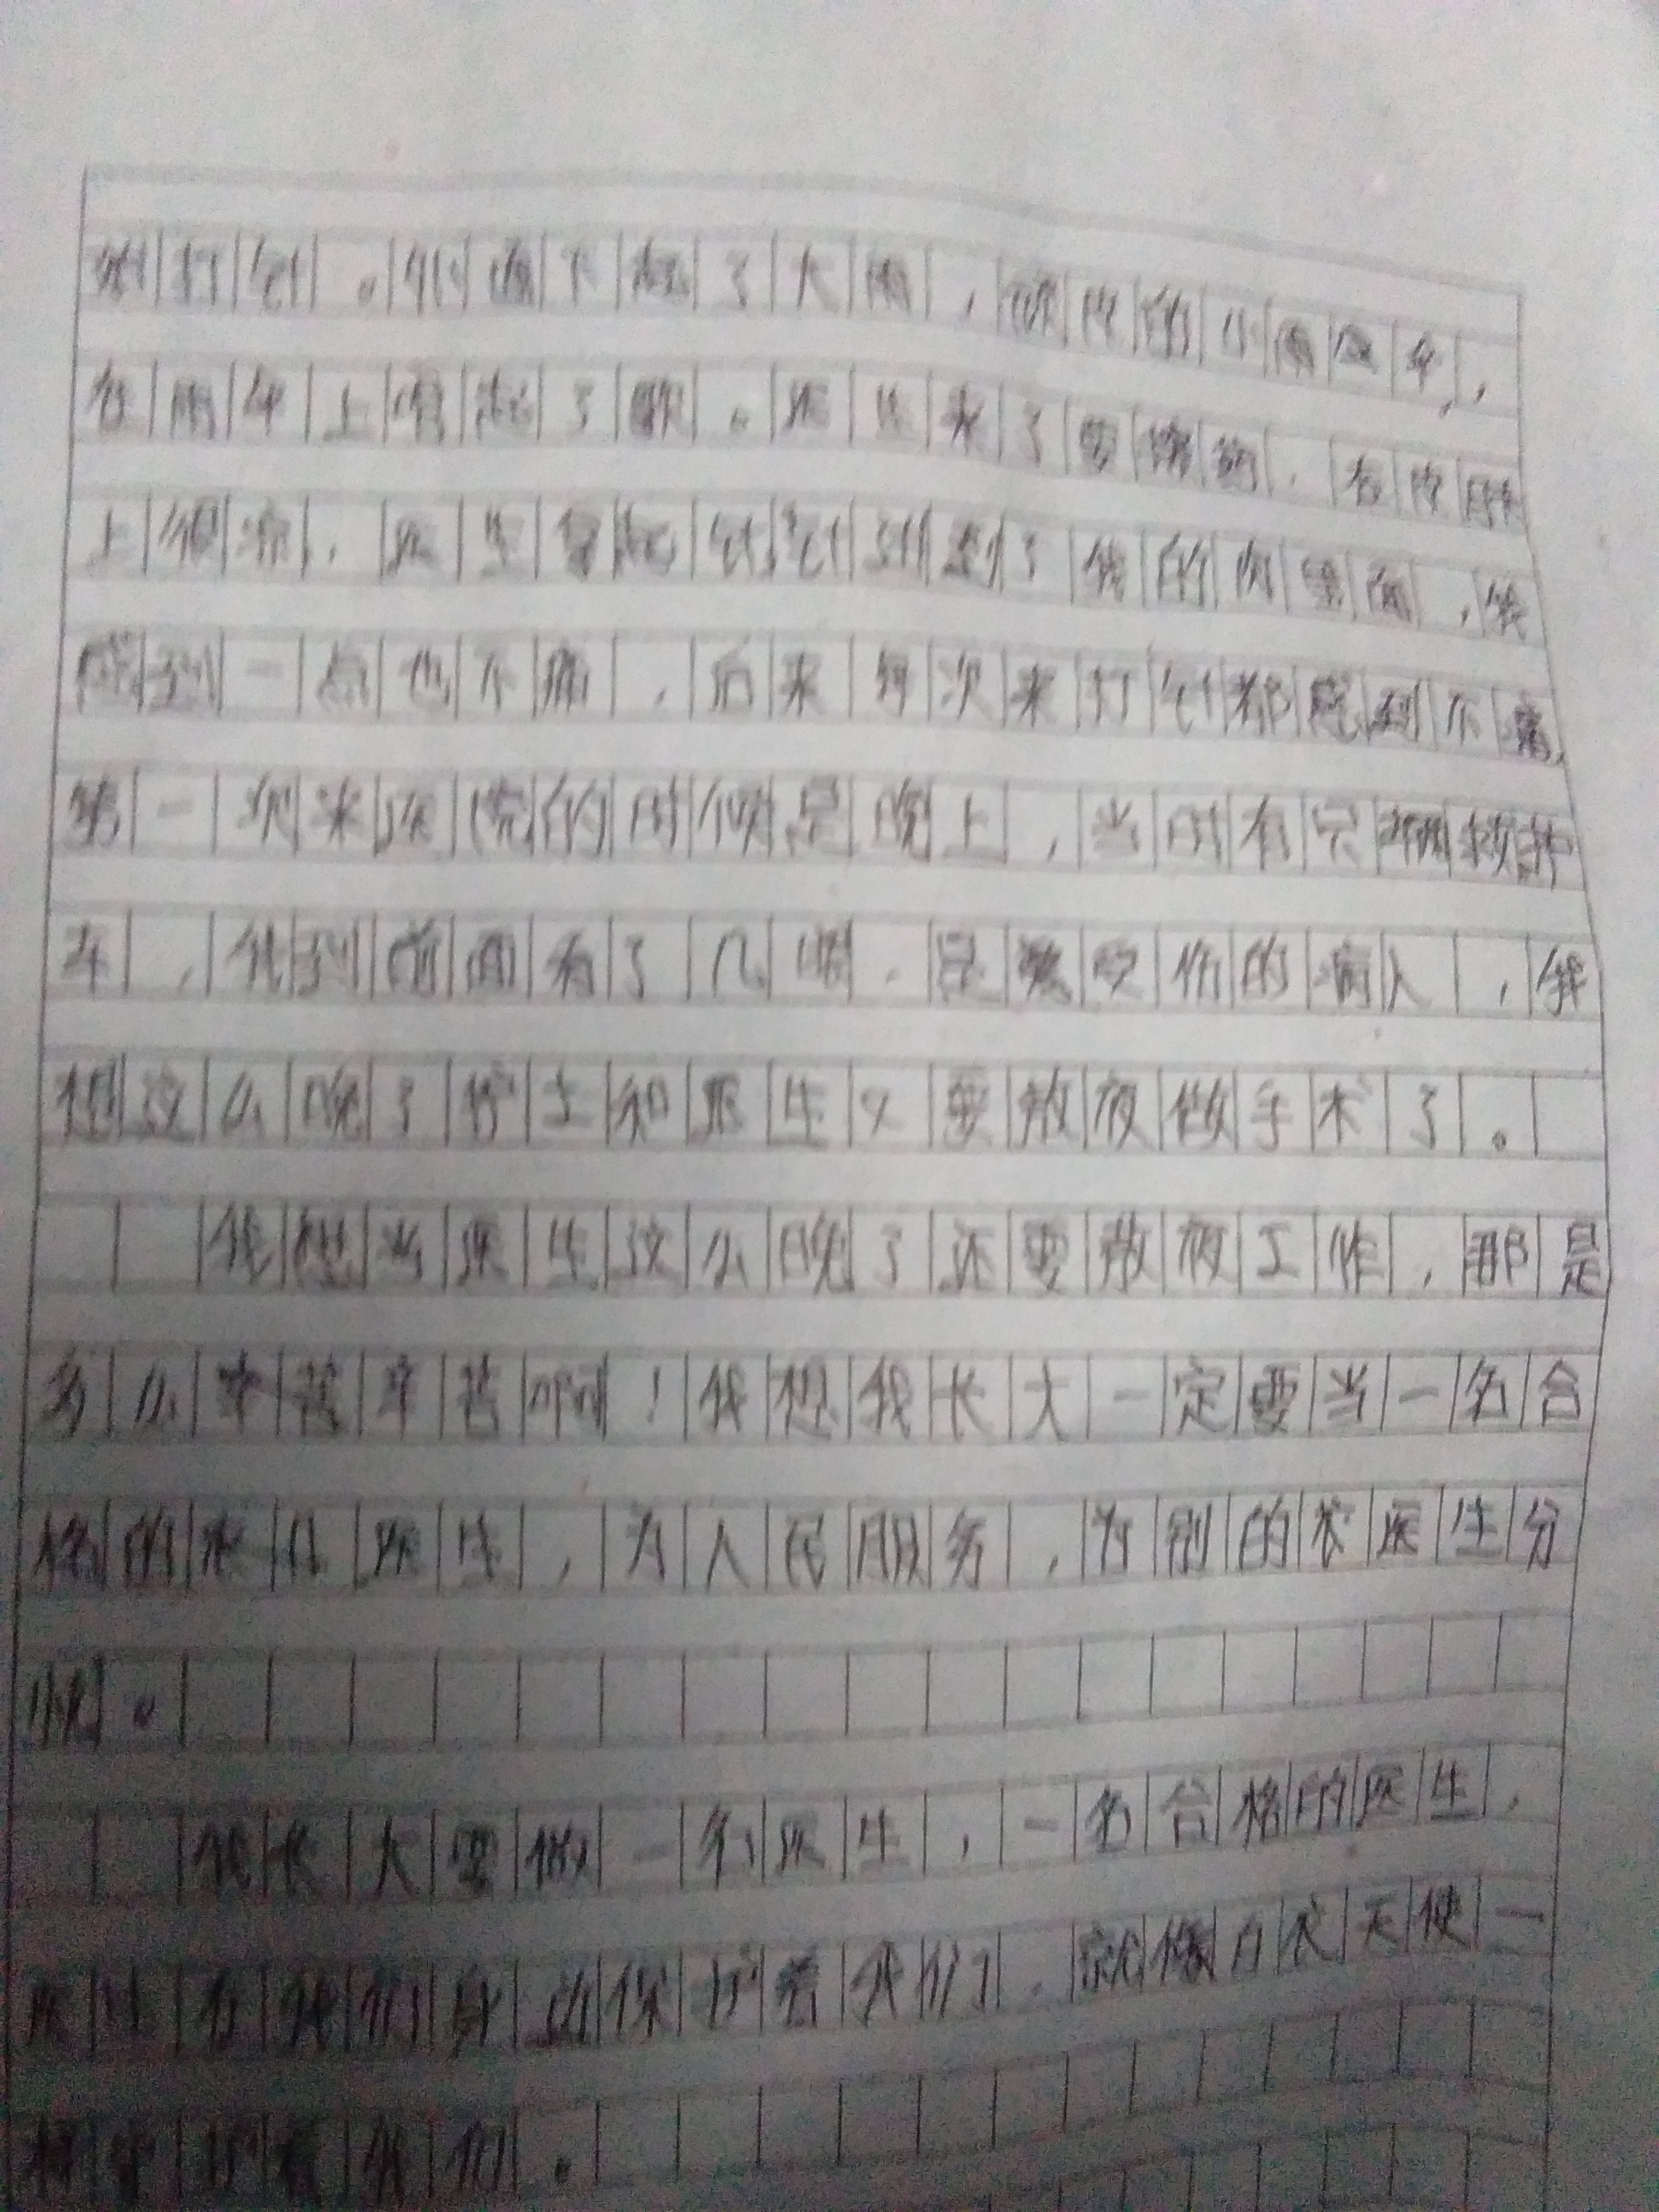 打针。外面下起了大雨，顽皮的小雨
在雨伞上唱起了歌。医生来了要擦药，在皮肤
上很凉，医生拿起针针到了我的肉里面，我
感到一点也不痛，后来每次来打针都感到不痛，
第一次来医院的时候是晚上，当时有只辆救护
车，我到前面看了几眼，是受伤的病人，我
想这么晚了护士和医生又要熬夜做手术了。
我想当医生这么晚了还要熬夜工作，那是
多么辛苦辛苦啊！我想我长大一定要当一名合
格的医生，为人民服务，为别的医生分
忧。
我长大要做一名医生，一名合格的医生，
医生在我们身边保护着我们，就像白衣天使一
样守护着我们。